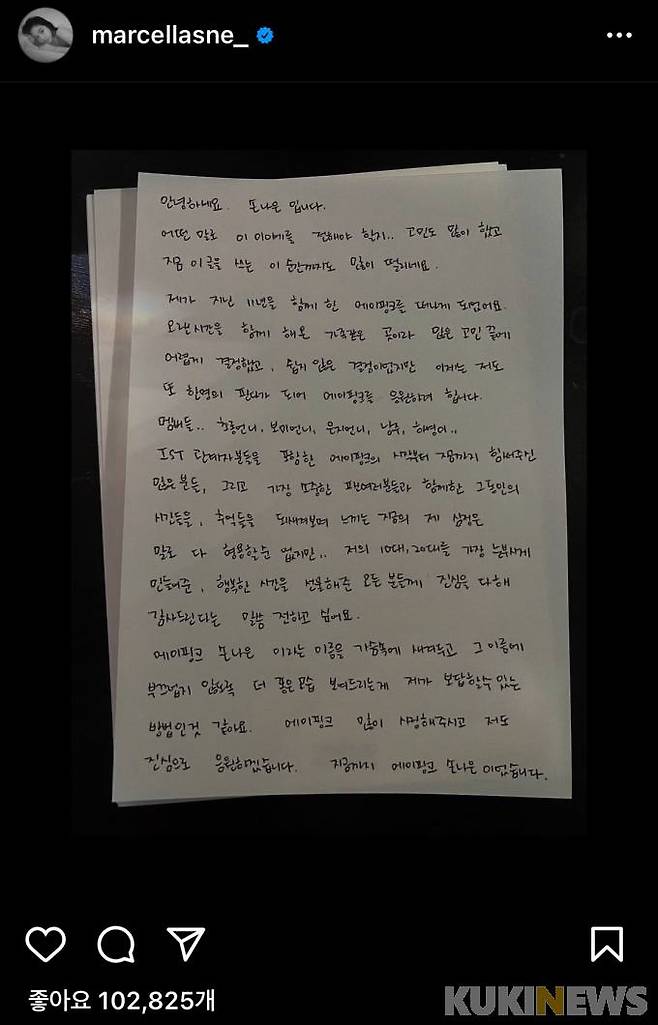 marcellasne_
안녕하세요. 손나은 입니다.
어떤 말로 이 이야기를 전해야 할지.. 고민도 많이 했고
지금 이 글을 쓰는 이 순간까지도 많이 떨리네요.
제가 지난 11년을 함께 한 에이핑크를 떠나게 되었어요.
오랜시간을 함께 해온 가족같은 곳이라 많은 고민 끝에
어렵게 결정했고, 쉽지 않은 결정이었지만 이제는 저도
또 한명의 판다가 되어 에이핑크를 응원하려 합니다.
멤버들.. 초롱언니, 보미언니, 은지언니, 남주, 하영이..
IST 관계자분들을 포함한 에이핑크의 시작부터 지금까지 힘써주신
많은분들, 그리고 가장 소중한 팬여러분들과 함께한 그동안의
시간들을, 추억들을 되새겨보며 느끼는 지금의 제 심정은
말로 다 형용할순 없지만.. 저의 10대, 20대를 가장 눈부시게
만들어준, 행복한 시간을 선물해준 모든 분들께 진심을 다해
감사드린다는 말씀 전하고 싶어요.
에이핑크 손나은 이라는 이름을 가슴속에 새겨두고 그 이름에
부끄럽지 않도록 더 좋은모습 보여드리는게 제가 보답할수 있는
방법인것 같아요. 에이핑크 많이 사랑해주시고 저도
진심으로 응원하겠습니다. 지금까지 에이핑크 손나은 이었습니다.
좋아요 102,825개
KUKINEWS